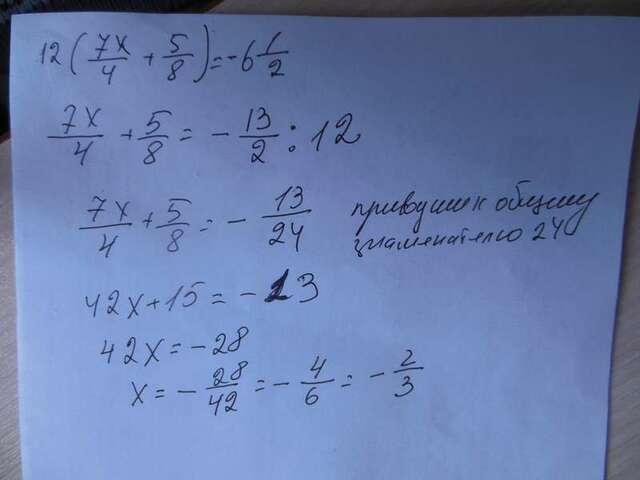 12(7x/4 + 5/8) = -6 1/2
7x/4 + 5/8 = - 13/2 : 12
7x/4 + 5/8 = - 13/24 приводим к общему
знаменателю 24
42x+15 = -13
42x = -28
x = - 28/42 = - 4/6 = - 2/3